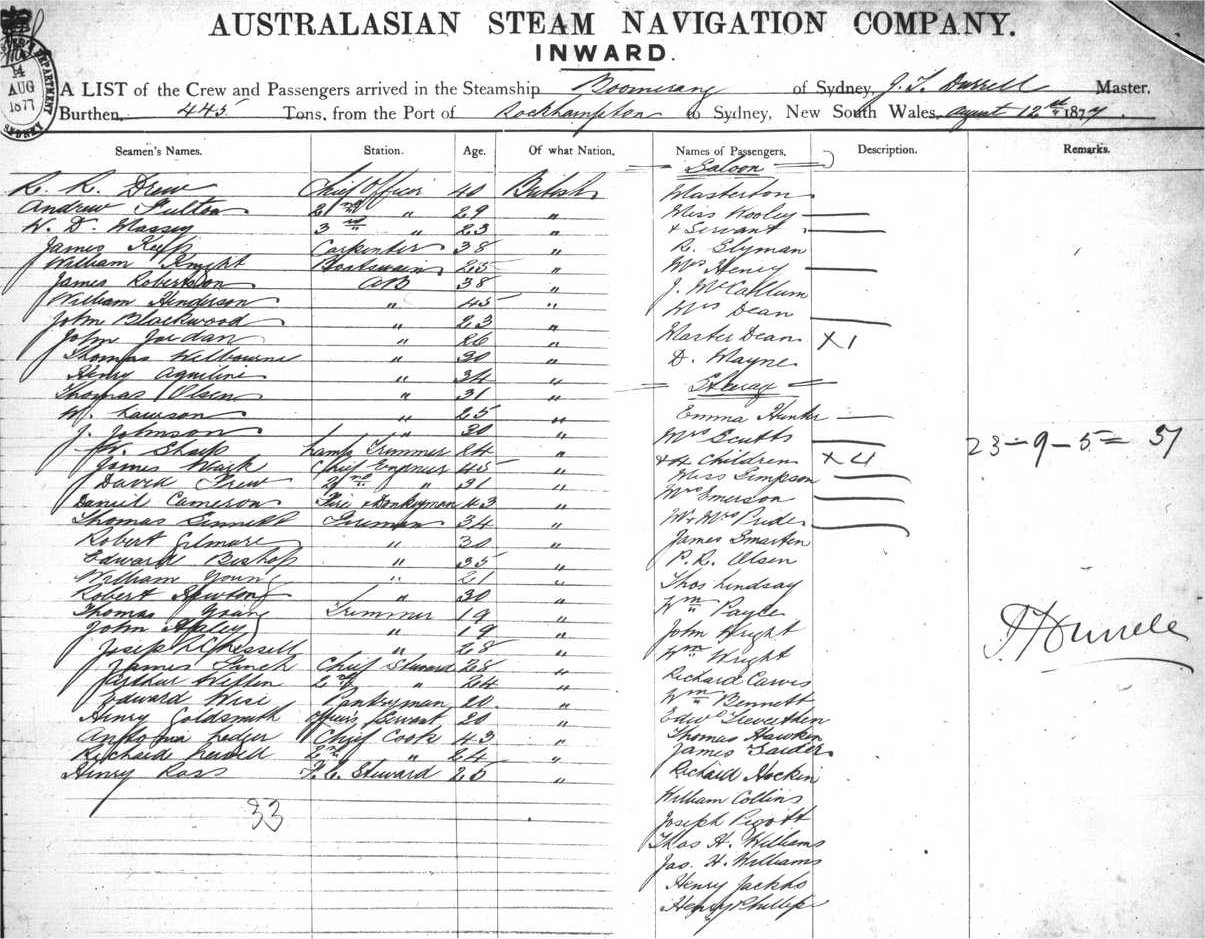 AUSTRALASIAN STEAM NAVIGATION COMPANY.
INWARD.
14
AUG
1877
DEPARTMENT
SYDNEY
A LIST of the Crew and Passengers arrived in the Steamship Boomerang of Sydney, Master,
Burthen, 445 Tons, from the Port of Rockhampton to Sydney, New South Wales, August 12th 1877
Seamen's Names. Station. Age. Of what Nation. Names of Passengers. Description. Remarks.
Saloon
R. R. Drew Chief Officer 40 British Masterton
Andrew Fulton 2nd " 29 " Miss Wooley
W. D. Massey 3rd " 23 " & Servant
James Carpenter 38 " R. Slyman
William Knight Boatswain 25 " Mrs Henry
James Robertson AB 38 " J. McCallum
William Henderson " 45 " Mrs Dean
John Blackwood " 23 "
John Jordan " 26 " Master Dean X1
Thomas Welbourne " 30 " D. Mayne
Henry Aquilini " 34 "
Steerage
Thomas Olsen " 31 "
W. Lawson " 25 " Emma Hunter
J. Johnson " 30 " Mrs Scutts
W. Sharp Lamp Trimmer 24 " & 4 Children X4 23-9-5=37
James Wark Chief Engineer 45 " Miss Simpson
David Frew 2nd " 31 " Mrs Emerson
Daniel Cameron Fire & Donkeyman 43 "
Thomas Fireman 34 " Mr & Mrs Pride
Robert Gilmore " 30 " James Smarten
Edward Bishop " 35 " P. R. Olsen
William Young " 21 " Thos Lindsay
Robert Newton " 30 " Wm Payle
Thomas Young Trimmer 19 "
John " 19 " John Wright
Joseph " 28 " Wm Wright
James Finch Chief Steward 28 " Richard
Arthur 2nd " 24 " Wm Bennett
Edward Wise Pantryman 20 " Edwd
Henry Goldsmith Officers Servant 20 " Thomas Hawken
Chief Cook 43 " James
Richard 2nd " 24 "
Henry Ross F. C. Steward 25 " Richard Hockin
33
William Collins
Joseph Pigott
Thos H. Williams
Jas. H. Williams
Henry
Henry Phillips